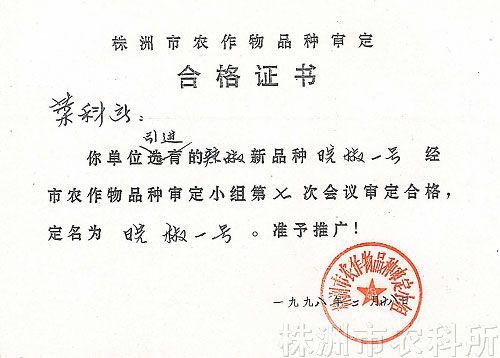 株洲市农作物品种审定
合格证书
菜科所：
引进
你单位选育的辣椒新品种 晥椒一号 经
市农作物品种审定小组第 七 次会议审定合格，
定名为 晥椒一号 。准予推广！
株洲市农作物品种审定小组
一九九八年二月 日
株洲市农科所